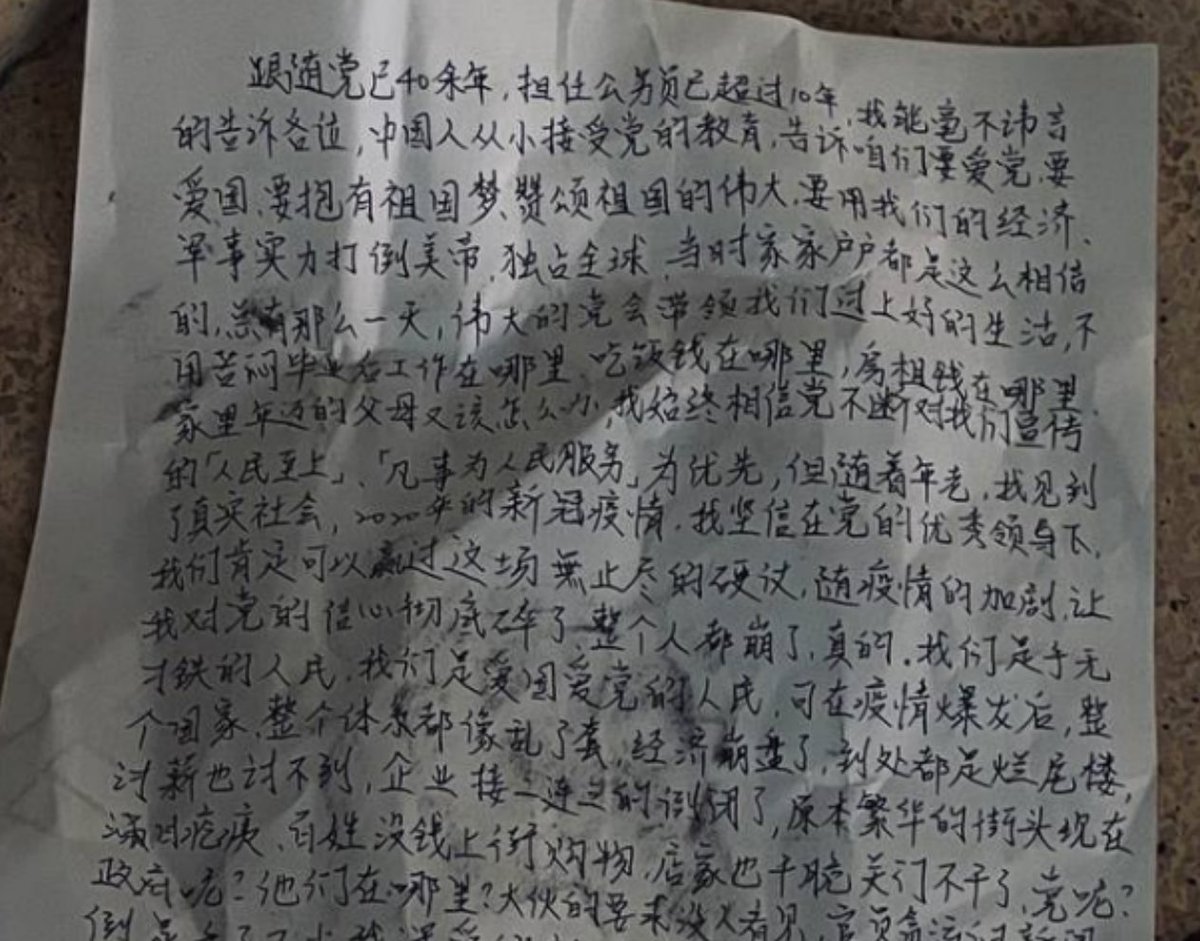 跟随党已40余年，担任公务员已超过10年，我能毫不讳言
的告诉各位，中国人从小接受党的教育，告诉咱们要爱党、要
爱国、要抱有祖国梦、赞颂祖国的伟大、要用我们的经济、
军事实力打倒美帝，独占全球，当时家家户户都是这么相信
的，总有那么一天，伟大的党会带领我们过上好的生活，不
用苦闷毕业后工作在哪里、吃饭钱在哪里，房租钱在哪里、
家里年迈的父母又该怎么办，我始终相信党不断对我们宣传
的「人民至上」、「凡事为人民服务」为优先，但随着年老，我见到
了真实社会，2020年的新冠疫情，我坚信在党的优秀领导下，
我们肯定可以赢过这场無止尽的硬仗，随疫情的加剧，让
我对党的信心彻底碎了，整个人都崩了，真的。我们是手无
寸铁的人民，我们是爱国爱党的人民，可在疫情爆发后，整
个国家、整个体系都像乱了套，经济崩盘了，到处都是烂尾楼，
讨薪也讨不到，企业接二连三的倒闭了，原本繁华的街头现在
满目疮痍，百姓没钱上街购物，店家也干脆关门不干了，党呢？
政府呢？他们在哪里？大伙的要求没人看见，官员
倒是